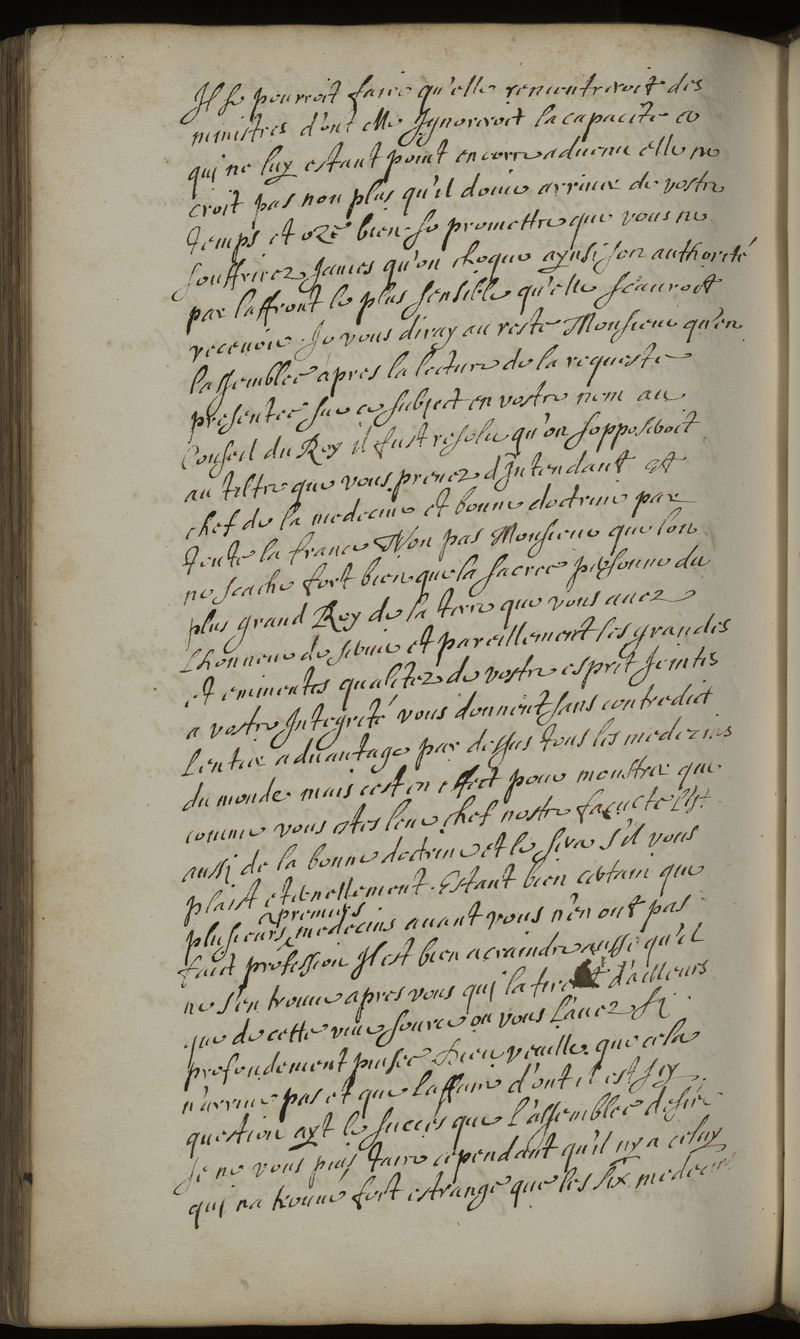 Il se pourroit faire qu'elle rencontreroit des
ministres d'ont elle Ignoreroit la capacite et
qui ne luy estant point encorre aduenu elle ne
croit pas non plus qu'il doiue arriuer de vostre
temps et oze bien se promettre que vous ne
souffrirez Iamies qu'on choque aynsi son authorité
par laffront le plus sensible qu'elle scauroit
receuoir. Je vous diray au reste Monsieur qu'en
lassemblee apres la lecture de la requeste
presentee sur ce subject en vostre nom au
Conseil du Roy il fust resolu qu'on sopposeroit
au tiltre que vous prenez d'Intendant et
chef de la medecine et bonne doctrine par
toute la france Non pas Monsieur que lon
ne scache fort bien que la sacree personne du
plus grand Roy de la terre que vous auez
Lhonneur de seruir et pareillement les grandes
et eminentes qualitez de vostre esprit Jointes
a vostre Integrité vous donnent sans contredict
Lentier aduantage par dessus tous les medecins
du monde mais cest en effect pour monstrer que
comme vous estes leur chef nostre faculte L'est
aussi de la bonne doctrine et le sera s'il vous
plaist eternellement. Estant bien certain que
premiers
plusieurs medecins auant vous n'en ont pas
faict profession Il est bien a craindre aussi qu'il
ne s'en trouue apres vous qui la tirent d'ailleurs
que de cette viue source ou vous L'auez si
profondement puisee Dieu veuille que cela
n'arriue pas et que Laffaire d'ont il est Icy
question ayt le succes que L'assemblee desire
Je ne vous puis taire cependant qu'il ny a celuy
qui na trouué fort estrange que les six medecins